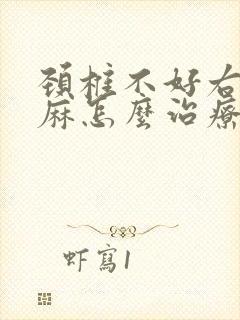 頸椎不好右
麻怎麼治療
虾寫1